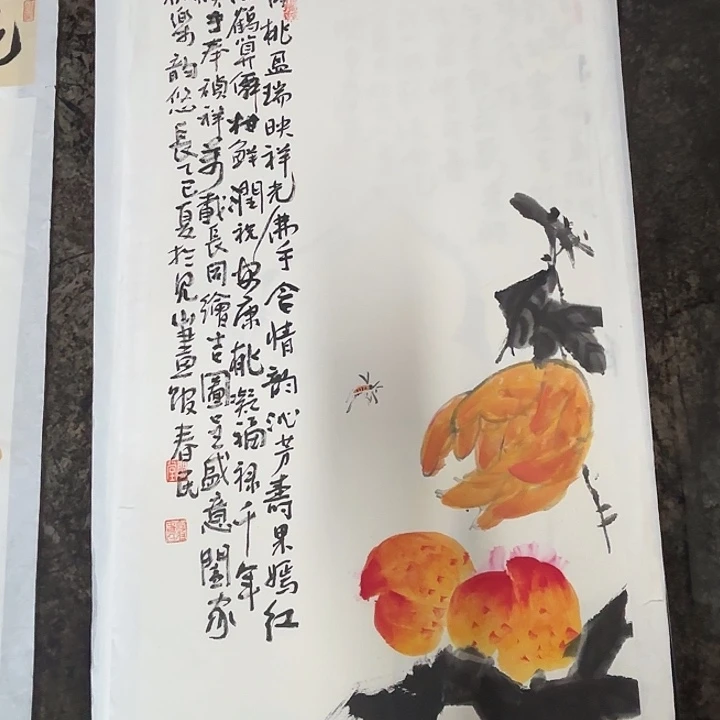 桃盈瑞映祥光佛手含情韵沁芳壽果嫣红
鶴算柑鲜潤祝安康桃凝福禄千年
手奉禎祥萬載長同繪吉圖呈盛意闔家
樂韵悠長乙巳夏於見山畫館春民